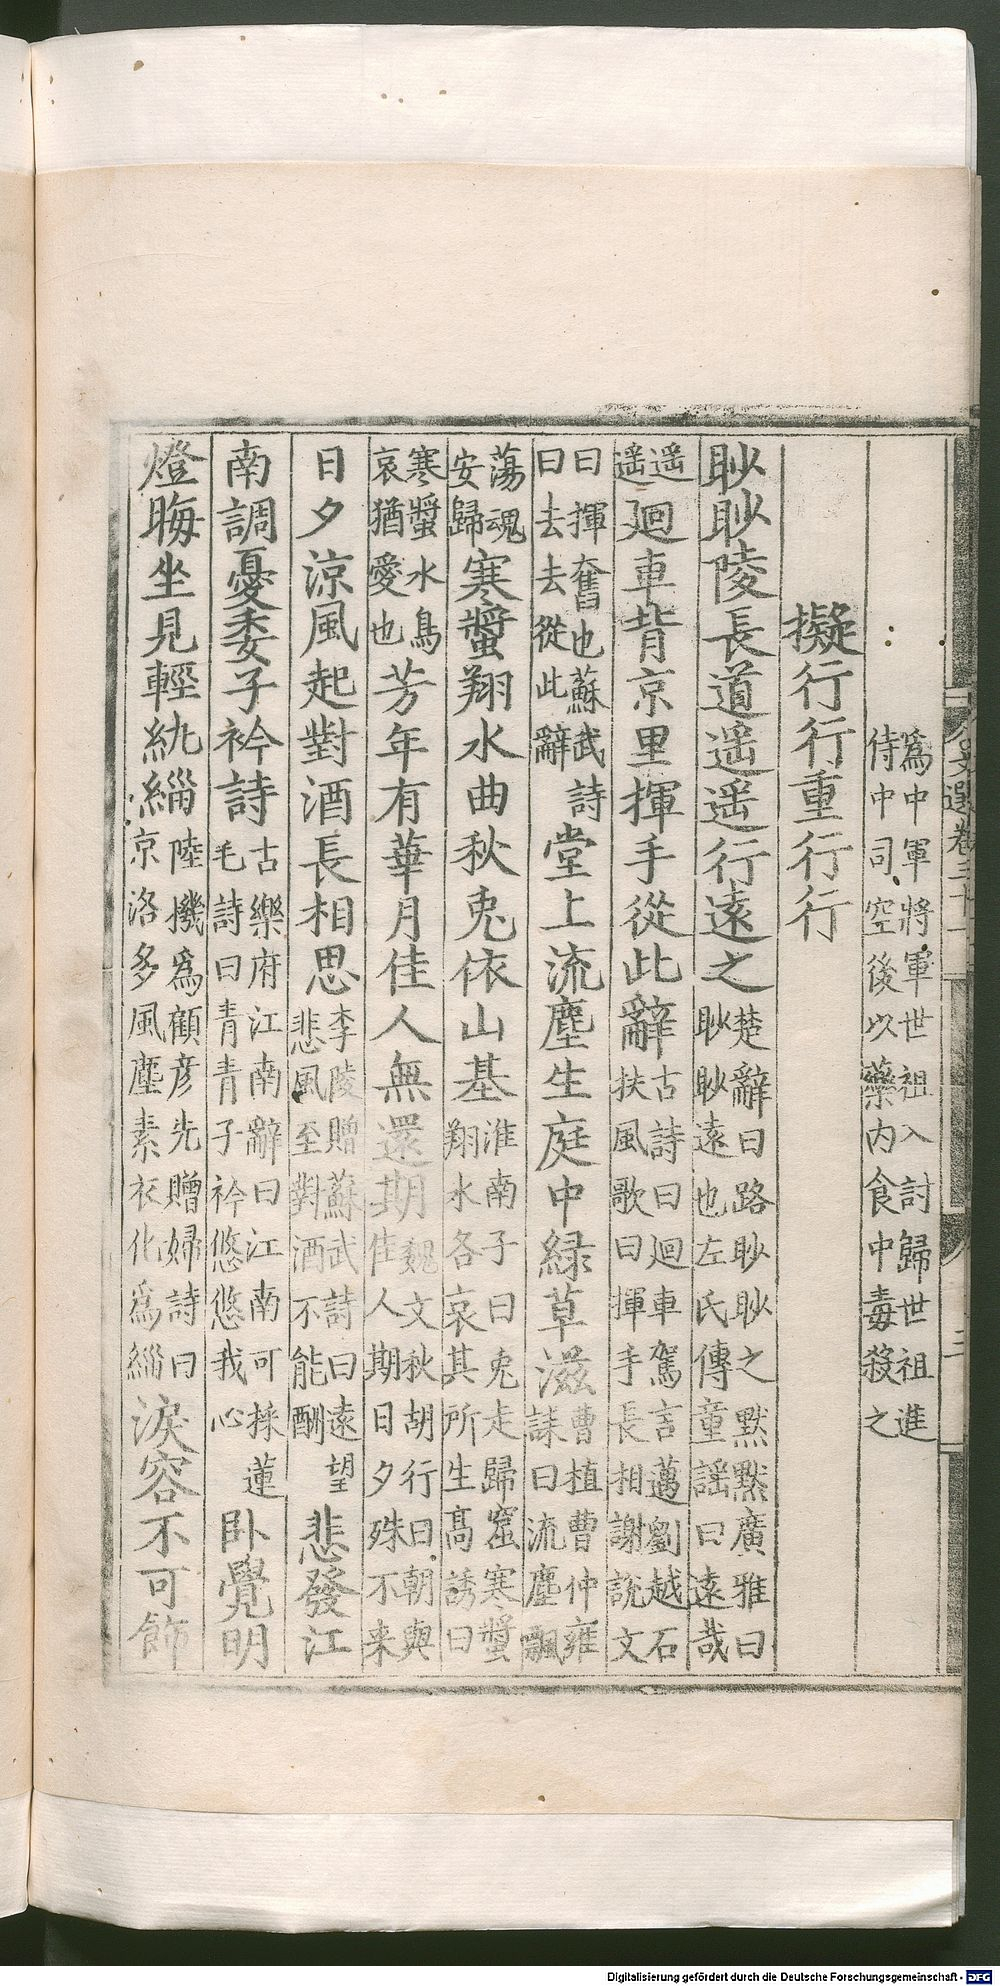 文選卷三十一 三
爲中軍將軍世祖入討歸世祖進侍中司空後以藥内食中毒殺之
擬行行重行行
眇眇陵長道遥遥行遠之楚辭曰路眇眇之默默廣雅曰眇眇遠也左氏傳童謡曰遠哉
遥遥廻車背京里揮手從此辭古詩曰廻車駕言邁劉越石扶風歌曰揮手長相謝説文
曰揮奮也蘇武詩曰去去從此辭堂上流塵生庭中緑草滋曹植曹仲雍誄曰流塵飄
蕩魂安歸寒螿翔水曲秋兎依山基淮南子曰兎走歸窟寒螿翔水各哀其所生高誘曰
寒螿水鳥哀猶愛也芳年有華月佳人無還期魏文秋胡行曰朝與佳人期日夕殊不来
日夕涼風起對酒長相思李陵贈蘇武詩曰遠望悲風至對酒不能酬悲發江
南調憂委子衿詩古樂府江南辭曰江南可採蓮毛詩曰青青子衿悠悠我心卧覺明
燈晦坐見輕紈緇陸機爲顧彦先贈婦詩曰京洛多風塵素衣化爲緇淚容不可飾
Digitalisierung gefördert durch die Deutsche Forschungsgemeinschaft - DFG